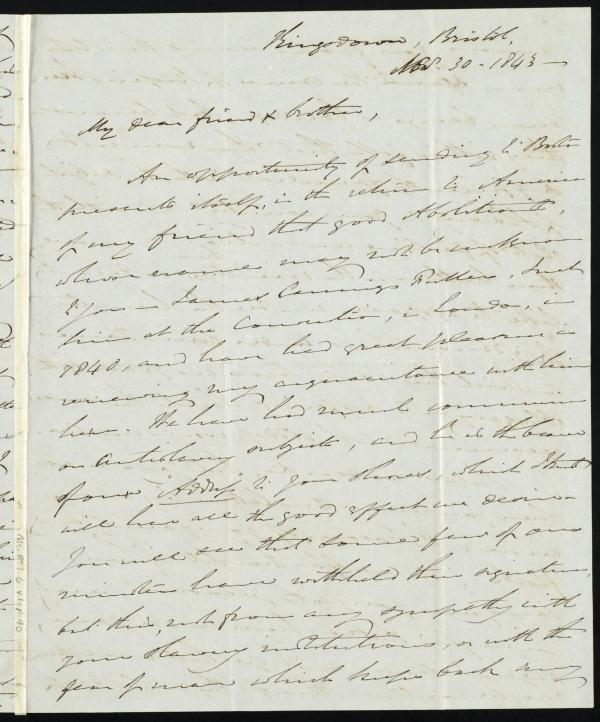 Kingsdown, Bristol,
Nov. 30 - 1843 -
My dear friend & brother,
An opportunity of sending to Boston
presents itself, in the return to America
of my friend that good Abolitionist,
whose name may not be unknown
to you - James Cannings Fuller. I met
him at the Convention, in London, in
1840, and have had great pleasure in
renewing my acquaintance with him
here. We have had much communion
on Antislavery subjects, and he is the bearer
of our Address to your shores, which I trust
will have all the good effect we desire.
You will see that some few of our
ministers have withheld their signatures,
but this, not from any sympathy with
your slavery institutions, or with the
fear of man which keeps back many